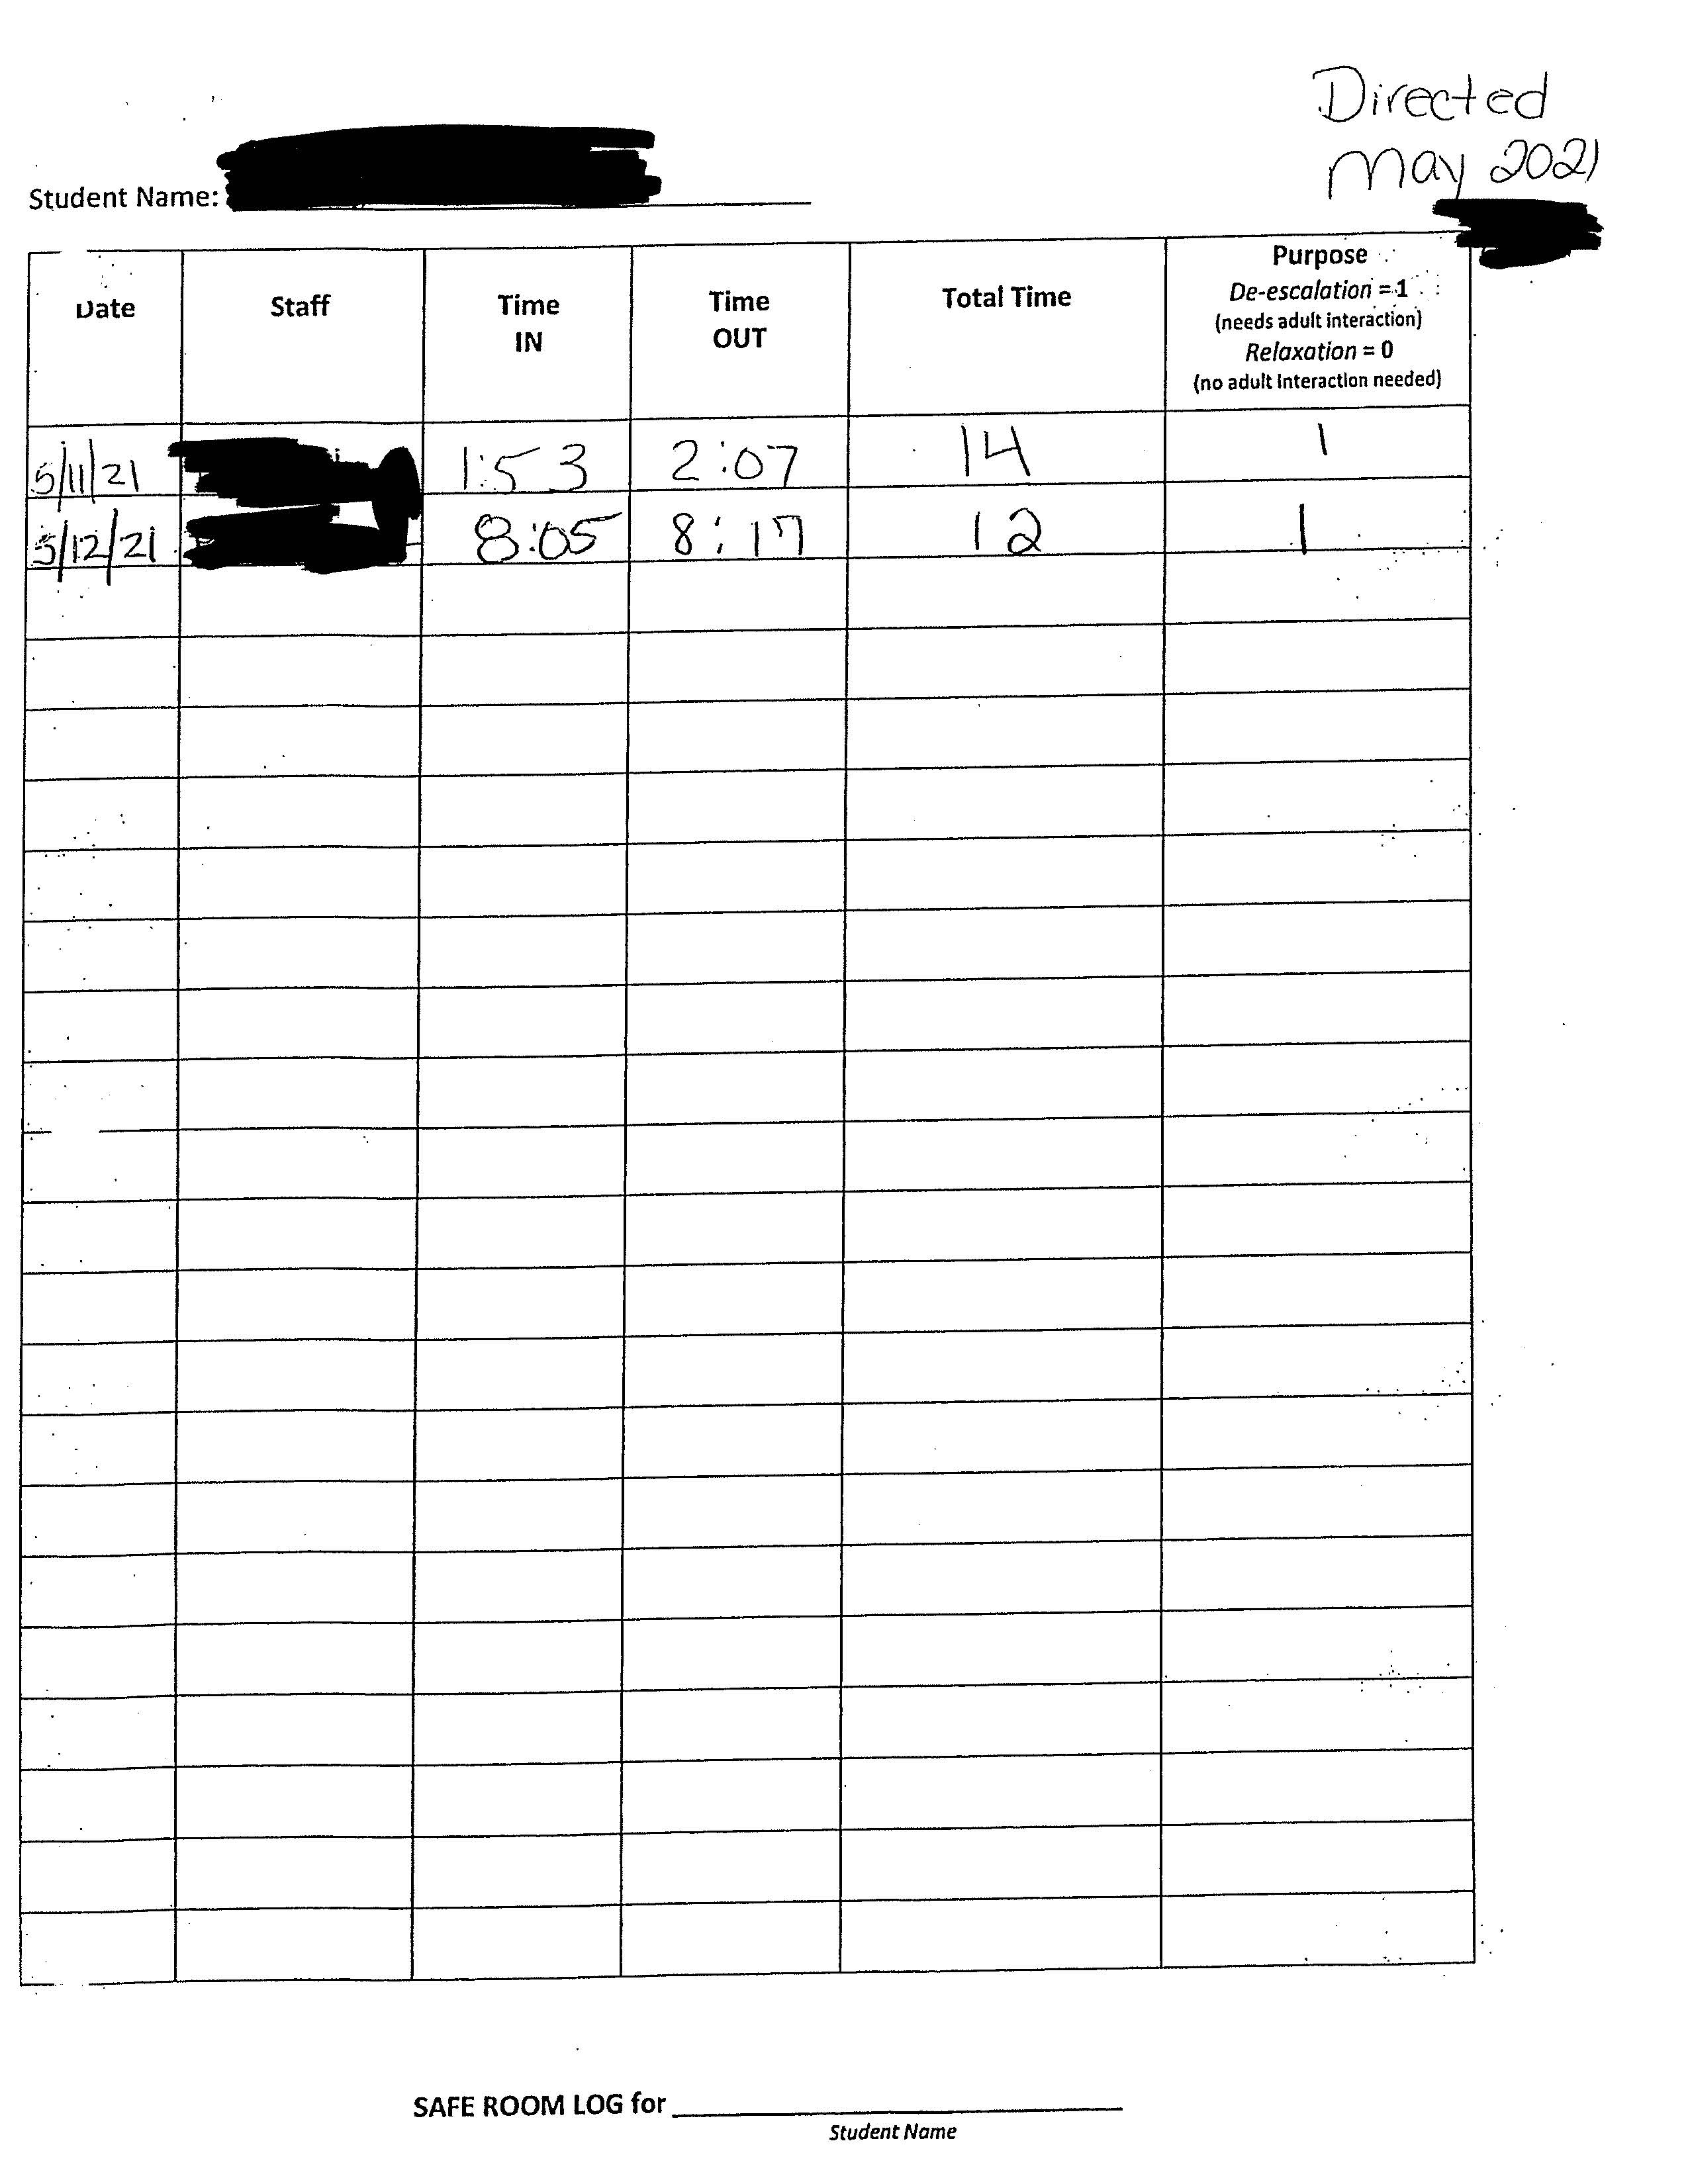 Directed
May 2021
Student Name:
Date Staff Time IN Time OUT Total Time Purpose
De-escalation = 1
(needs adult interaction)
Relaxation = 0
(no adult interaction needed)
5/11/21 1:53 2:07 14 1
5/12/21 8:05 8:17 12 1
SAFE ROOM LOG for
Student Name